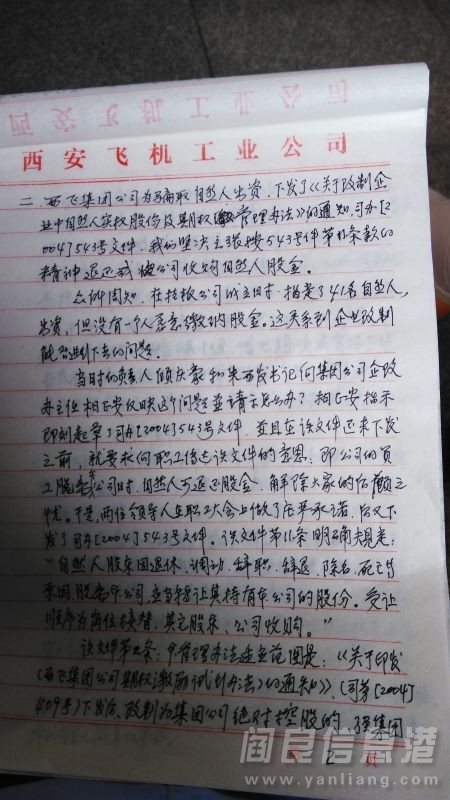 西安飞机工业公司
二、西飞集团公司为确取自然人出资、下发了《关于改制企
业中自然人实权股份及其期权管理办法》的通知,司办[2
004]543号文件,我们坚决主张按543号件第11条款的
精神退还或 公司收购自然人股金。
众所周知,在 公司成立时,指定了41名自然人
出资,但没有一个人愿意缴纳股金。这关系到企业改制
能否进行下去的问题。
当时的负责人 和 书记向集团公司企改
办主任相正安反映这个问题并请示怎么办?相正安指示
即刻起草了司办[2004]543号文件,并且在该文件还未下发
之前,就要求向职工传达该文件的意思,即公司的员
工脱离公司时,自然人可退还股金,解除大家的后顾之
忧。于是,两位领导人在职工大会上做了庄严承诺,后又下
发了司办[2004]543号文件。该文件第11条明确规定:
“自然人股东因退休、调动、辞职、辞退、除名、死亡等
原因,脱离本公司,应当转让其持有本公司的股份。受让
顺序为岗位接替、其它股东、公司收购。”
该文件第 条:本管理办法适应范围是:《关于印发
(西飞集团公司期权激励试行办法)的通知》、(司劳[2004]
409号)下发后、改制为集团公司绝对控股的 集团
2
阎良信息港
www.yanliang.com